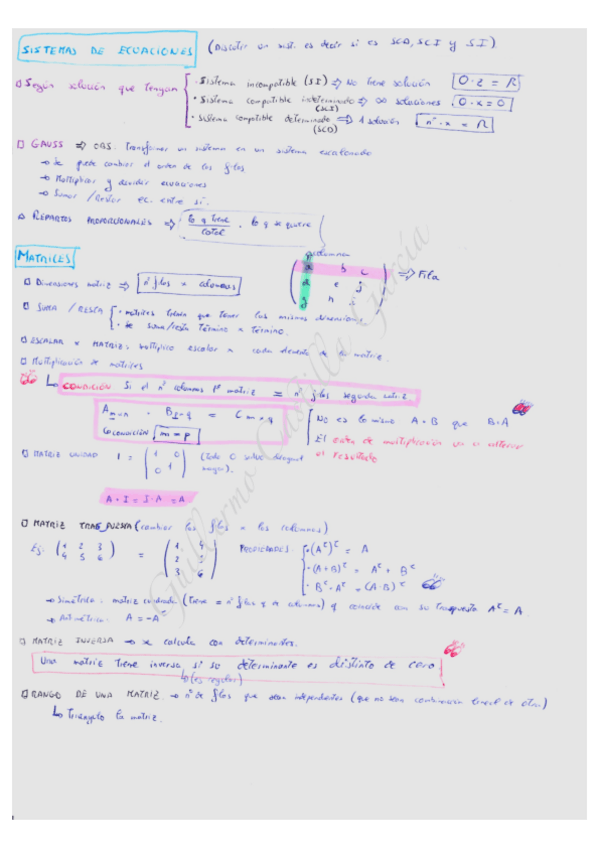 SISTEMAS DE ECUACIONES (Discutir un sist. es decir si es SCD, SCI y S.I)
□ Según solución que tengan
· Sistema incompatible (S.I) ⇒ No tiene solución 0·z = R
· Sistema compatible indeterminado ⇒ ∞ soluciones 0·x = 0
(SCI)
· Sistema compatible determinado ⇒ 1 solución nº·x = R
(SCD)
□ GAUSS ⇒ OBS: Transformar un sistema en un sistema escalonado
→ Se puede cambiar el orden de las filas
→ Multiplicar y dividir ecuaciones
→ Sumar / Restar ec. entre sí.
△ REPARTOS PROPORCIONALES ⇒ lo q tiene / total · lo q se quiere
MATRICES
columna
a b c
d e f
g h i
⇒ Fila
□ Dimensiones matriz ⇒ nº filas x columnas
□ SUMA / RESTA · matrices tienen que tener las mismas dimensiones
· se suma/resta término a término.
□ ESCALAR x MATRIZ: multiplico escalar x cada elemento de la matriz.
□ Multiplicación de matrices
↳ CONDICIÓN: Si el nº columnas 1ª matriz = nº filas segunda matriz.
A m×n · B p×q = C m×q
↳ CONDICIÓN m = p
No es lo mismo A·B que B·A
El orden de multiplicación va a alterar el resultado
□ MATRIZ UNIDAD I = (1 0
0 1) (Todo 0 salvo diagonal
A·I = I·A = A
□ MATRIZ TRASPUESTA (cambiar las filas x las columnas)
Ej: (1 2 3
4 5 6) = (1 4
2 5
3 6)
PROPIEDADES:
· (Aᵗ)ᵗ = A
· (A+B)ᵗ = Aᵗ + Bᵗ
· Bᵗ·Aᵗ = (A·B)ᵗ
→ Simétrica: matriz cuadrada (tiene = nº filas q de columnas) y coincide con su traspuesta Aᵗ = A
→ Antisimétrica: A = -Aᵗ
□ MATRIZ INVERSA → se calcula con determinantes.
Una matriz tiene inversa si su determinante es distinto de cero
↳ (es regular)
□ RANGO DE UNA MATRIZ → nº de filas que sean independientes (que no sean combinación lineal de otra)
↳ Triangulo la matriz.
Guillermo Castilla García